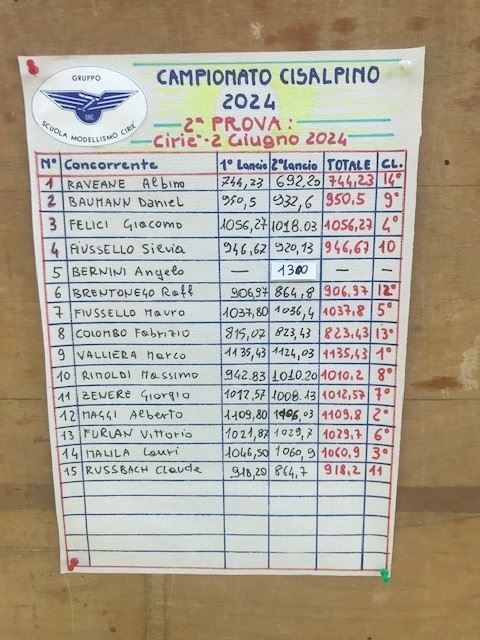 GRUPPO
SMC
SCUOLA MODELLISMO CIRIE'
CAMPIONATO CISALPINO
2024
2ª PROVA:
Ciriè - 2 Giugno 2024
N° Concorrente 1° Lancio 2° Lancio TOTALE CL.
1 RAVEANE Albino 744,23 692,20 744,23 14°
2 BAUMANN Daniel 950,5 932,6 950,5 9°
3 FELICI Giacomo 1056,27 1018.03 1056,27 4°
4 FIUSSELLO Silvia 946,67 920,13 946,67 10
5 BERNINI Angelo — 1300 — —
6 BRENTONEGO Raff 906,97 864,8 906,97 12°
7 FIUSSELLO Mauro 1037,80 1036,4 1037,8 5°
8 COLOMBO Fabrizio 815,07 823,43 823,43 13°
9 VALLIERA Marco 1135,43 1124,03 1135,43 1°
10 RIMOLDI Massimo 942.83 1010.20 1010,2 8°
11 ZENERE Giorgio 1012,57 1008.13 1012,57 7°
12 MAGGI Alberto 1109,80 03 1109,8 2°
13 FURLAN Vittorio 1021,87 1029,7 1029,7 6°
14 MALILA Lauri 1046,50 1060,9 1060,9 3°
15 RUSSBACH Claude 918,20 864,7 918,2 11